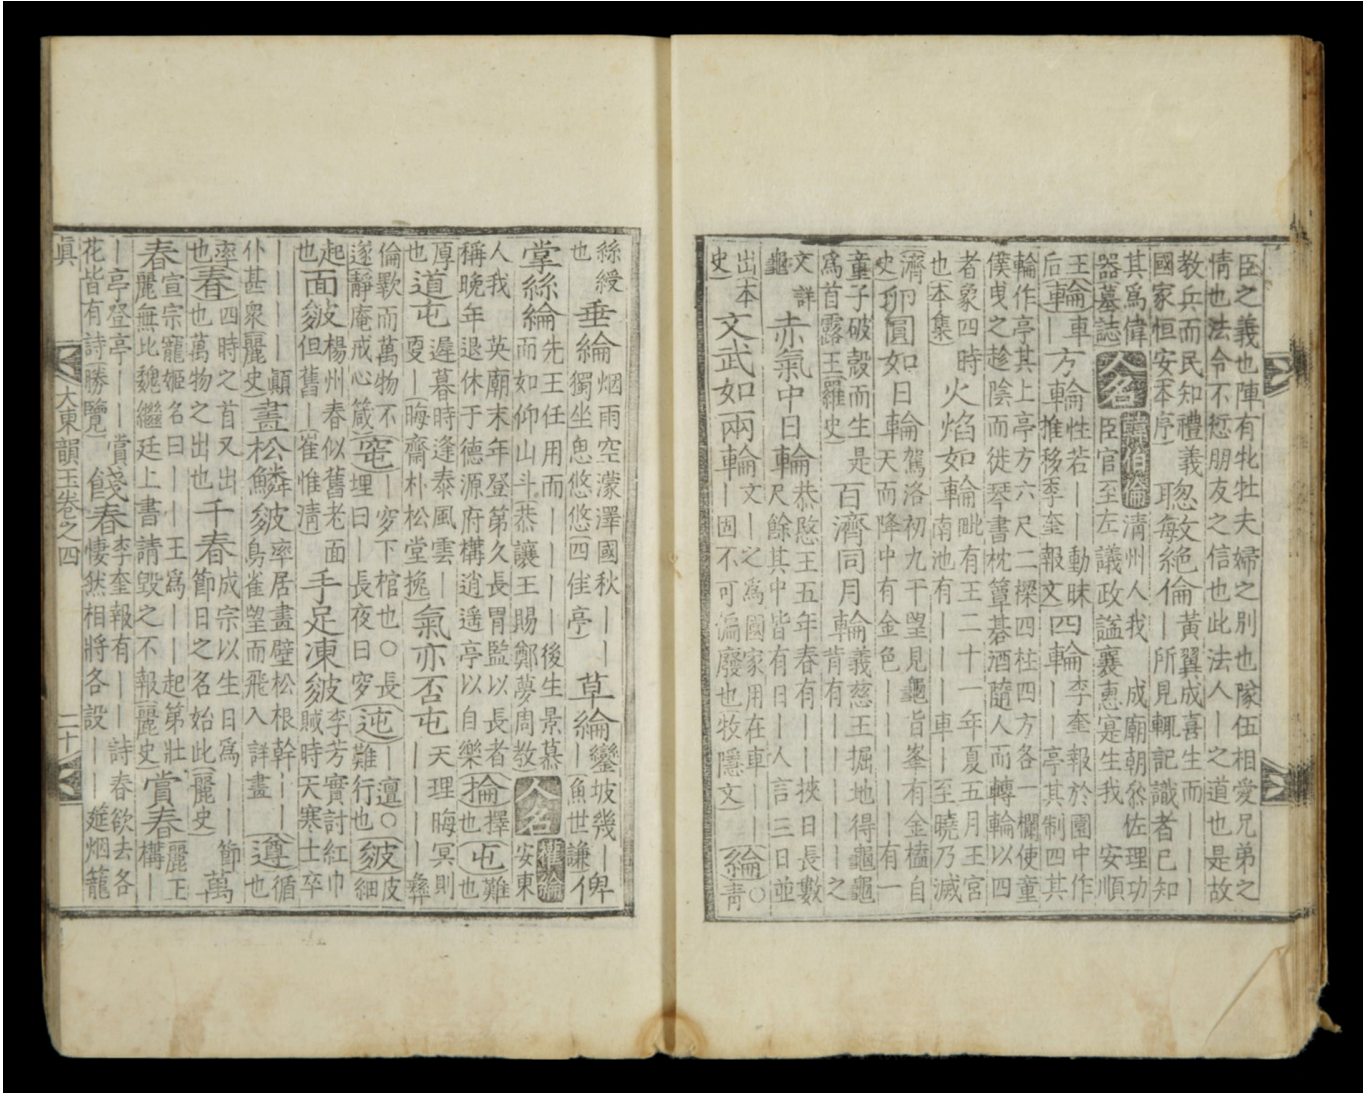 臣之義也陣有牝牡夫婦之別也隊伍相愛兄弟之
情也法令不愆朋友之信也此法人｜之道也是故
教兵而民知禮義國家恒安本序聰敏絶倫黃翼成喜生而｜｜｜所見輒記識者已知
其爲偉器墓誌人名韓伯倫淸州人我 成廟朝叅佐理功臣官至左議政諡襄惠寔生我 安順
王后輪車｜方輪性若｜｜動昧推移李奎報文四輪李奎報於園中作｜｜亭其制四其
輪作亭其上亭方六尺二樑四柱四方各一欄使童
僕曳之趁陰而徙琴書枕簟碁酒隨人而轉輪以四
者象四時也本集火焰如車輪毗有王二十一年夏五月王宮南池有｜｜｜車｜至曉乃滅
濟史卵圓如日輪駕洛初九干望見龜旨峯有金榼自天而降中有金色｜｜｜｜有一
童子破殼而生是爲首露王羅史百濟同月輪義慈王掘地得龜龜背有｜｜｜｜｜之
文詳龜赤氣中日輪恭愍王五年春有｜｜挾日長數尺餘其中皆有日｜人言三日並
出本史文武如兩輪文｜之爲國家用在車｜也｜固不可偏廢也牧隱文綸○靑
絲綬也垂綸烟雨空濛澤國秋｜｜獨坐忽悠悠四佳亭草綸鑾坡幾｜｜魚世謙俾
掌絲綸先王任用而｜｜｜｜後生景慕而如仰山斗恭讓王賜鄭夢周敎人名權綸安東
人我 英廟末年登第久長胄監以長者稱晚年退休于德源府構逍遙亭以自樂掄擇也屯難也
厚也道屯遲暮時逢泰風雲｜戛｜晦齋朴松堂挽氣亦否屯天理晦冥則｜｜｜｜彝
倫斁而萬物不遂靜庵戒心箴窀穸下棺也○長埋曰｜長夜曰穸迍｜邅○難行也皴皮細
起也面皴楊州春似舊老面但舊｜崔惟淸手足凍皴李芳實討紅巾賊時天寒士卒
｜｜｜｜顚仆甚衆麗史畫松鱗皴率居畫壁松根幹｜｜鳥雀望而飛入 詳畫遵循也
率也春四時之首又出也萬物之出也千春成宗以生日爲｜｜節節日之名始此麗史萬
春宣宗寵姬名曰｜｜王爲｜｜起第壯麗無比魏繼廷上書請毁之不報麗史賞春麗王構｜
｜亭登亭｜｜賞花皆有詩勝覽餞春李奎報有｜｜詩春欲去各悽然相將各設｜｜筵烟籠
眞 大東韻玉卷之四 二十